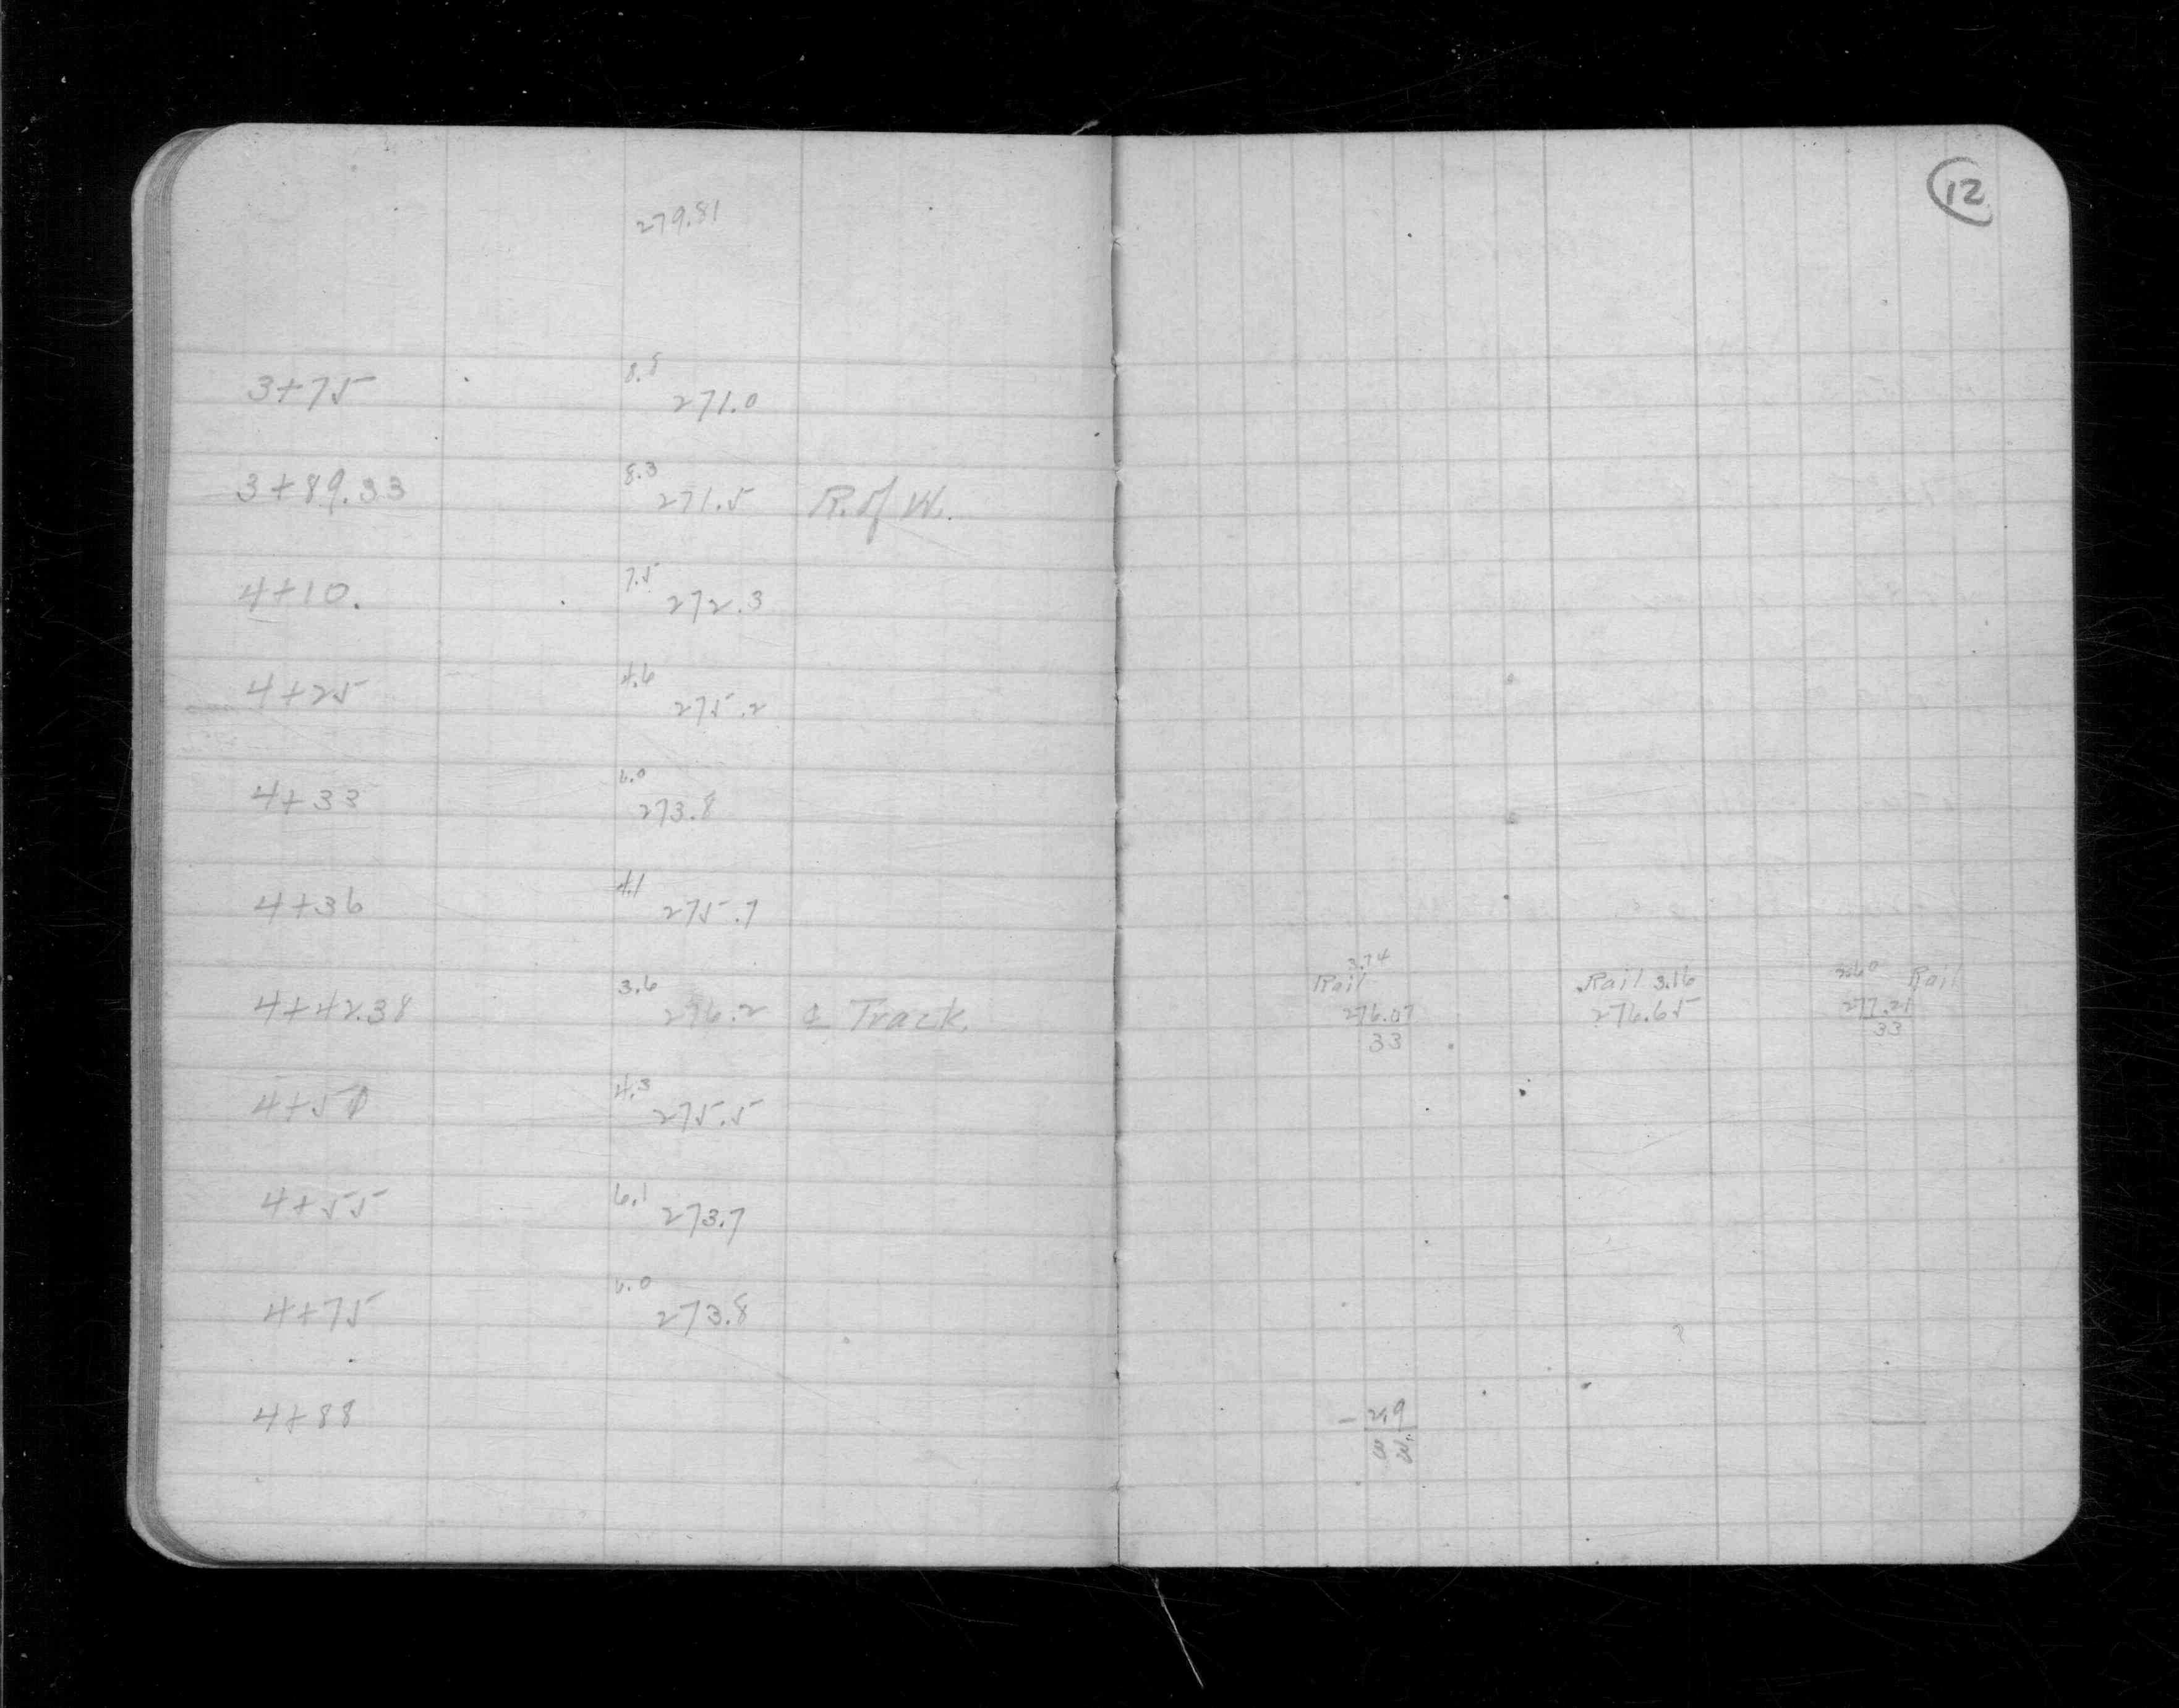 12
279.81
3+75 8.8 271.0
3+89.33 8.3 271.5 R. of W.
4+10. 7.5 272.3
4+25 4.6 275.2
4+33 6.0 273.8
4+36 4.1 275.7
4+42.38 3.6 276.2 ℄ Track.
Rail 3.74 Rail 3.16 2.60 Rail
276.07 276.65 277.21
33 33
4+50 4.3 275.5
4+55 6.1 273.7
4+75 6.0 273.8
4+88 -2.9
33